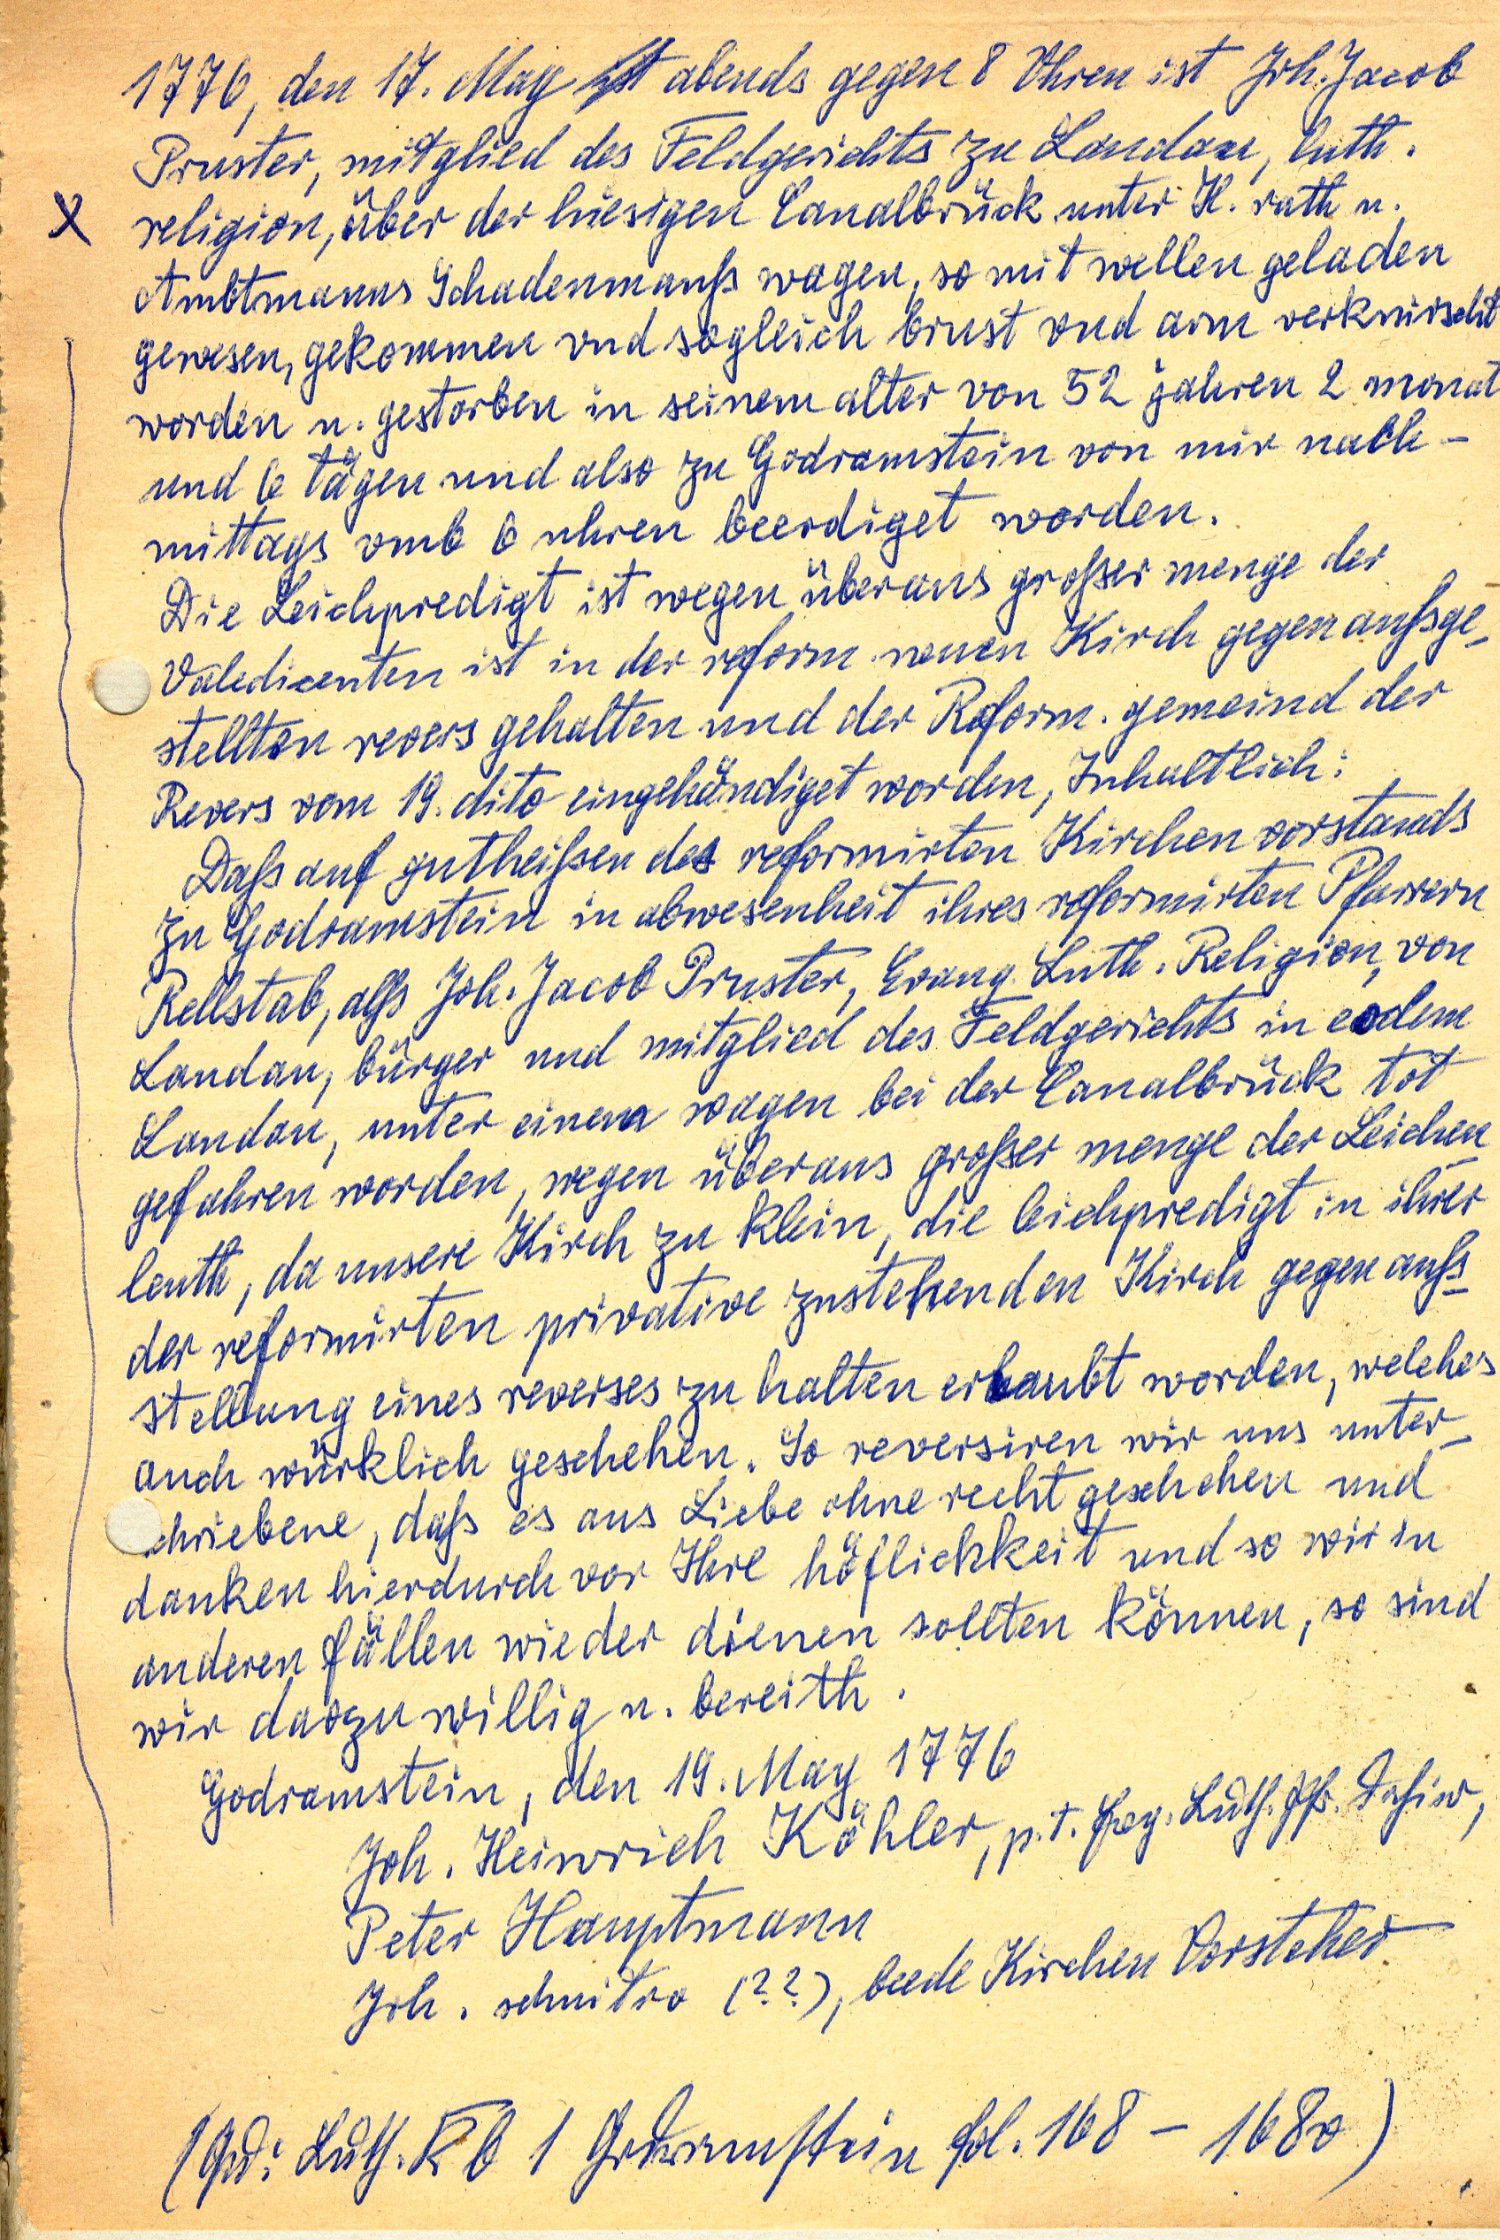 1776, den 17. May ist abends gegen 8 Uhren ist Joh. Jacob
Pruster, mitglied des Feldgerichts zu Landau, luth.
x religion, über der hiesigen Canalbrück unter H. rath u.
Ambtmanns Schadenmanßs wagen, so mit wellen geladen
gewesen, gekommen vnd sogleich brust vnd arm verknirscht
worden u. gestorben in seinem alter von 52 jahren 2 monat
und 6 tägen und also zu Godramstein von mir nach-
mittags vmb 6 uhren beerdiget worden.
Die Leichpredigt ist wegen überaus großer menge der
Valedicenten ist in der reform neuen Kirch gegen aufsge-
stellten revers gehalten und der Reform. gemeind der
Revers vom 19. dito eingehändiget worden, Inhaltlich:
Daß auf gutheißen des reformirten Kirchen vorstands
zu Godramstein in abwesenheit ihres reformirten Pfarrern
Rellstab, alßs Joh. Jacob Pruster, Evang. Luth. Religion, von
Landau, bürger und mitglied des Feldgerichts in eodem
Landau, unter einem wagen bei der Canalbrück tot
gefahren worden, wegen überaus großer menge der Leichen
leuth, da unsere Kirch zu klein, die leichpredigt in ihrer
der reformirten privative zustehenden Kirch gegen aufs-
stellung eines reverses zu halten erlaubt worden, welches
auch würklich geschehen. So reversiren wir uns unter-
schriebene, daß es aus Liebe ohne recht geschehen und
danken hierdurch vor Ihre höflichkeit und so wir in
anderen fällen wieder dienen sollten können, so sind
wir daozu willig u. bereith.
Godramstein, den 19. May 1776
Joh. Heinrich Köhler, p.t. Luth. Pfr.
Peter Hauptmann
Joh. schnitro (??), beede Kirchen Vorsteher
(Qu: Luth. KB 1 Godramstein fol. 168 - 168v)